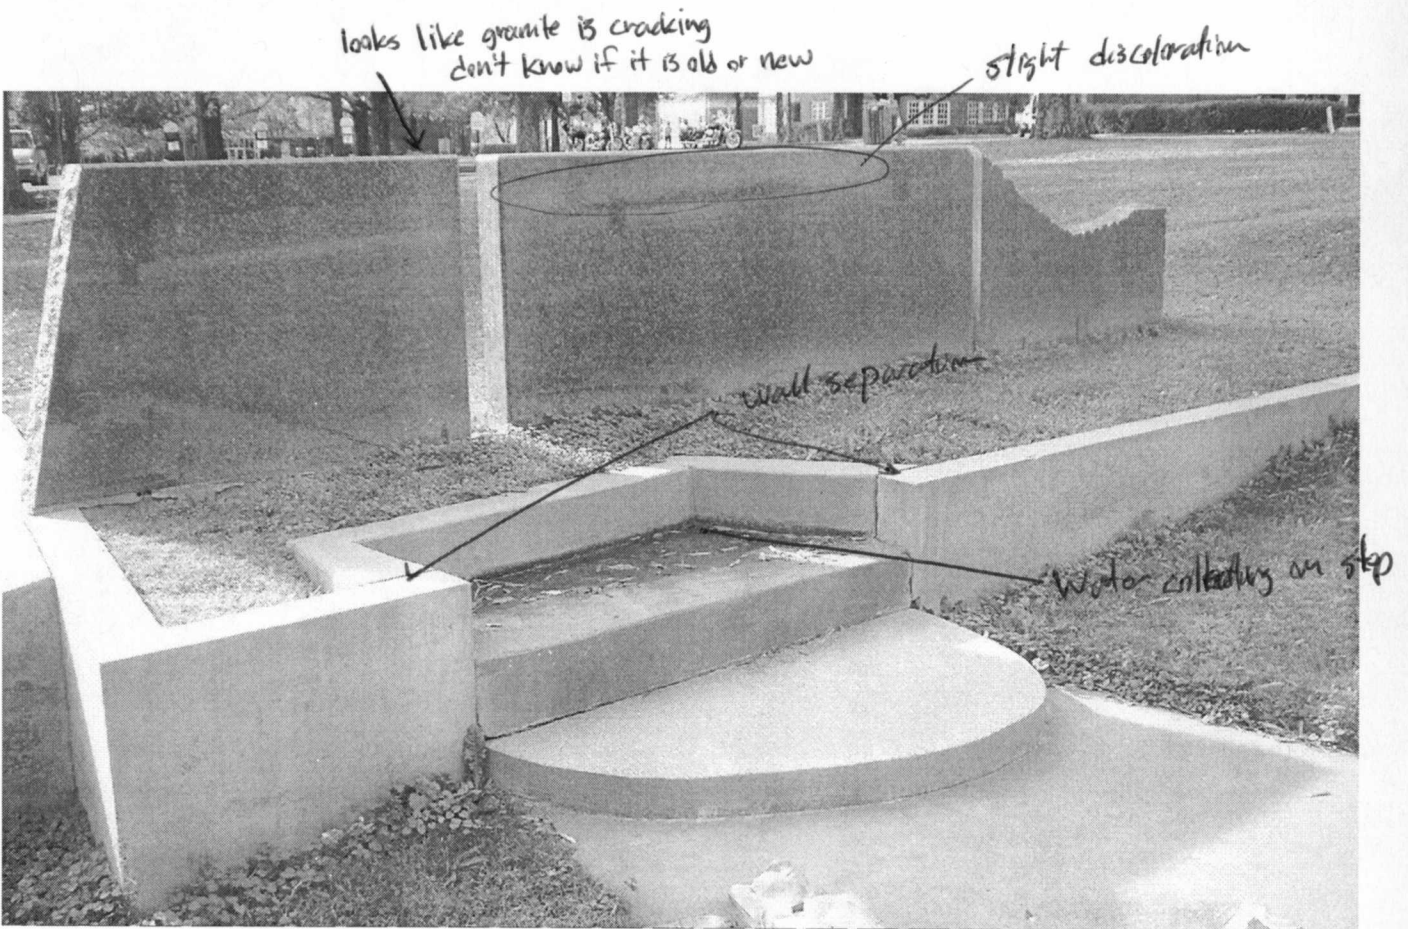 looks like granite is cracking
don't know if it is old or new
slight discoloration
wall separation
Water collecting on step